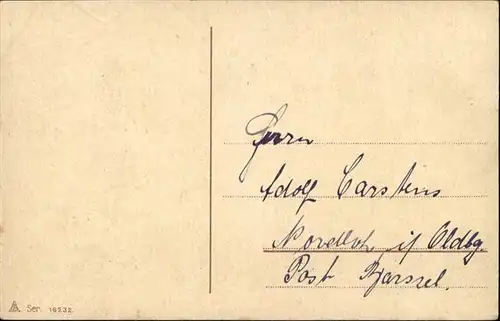 Herrn
Adolf Carstens
Nordloh i/ Oldbg
Post Barssel.
Ser. 16232.